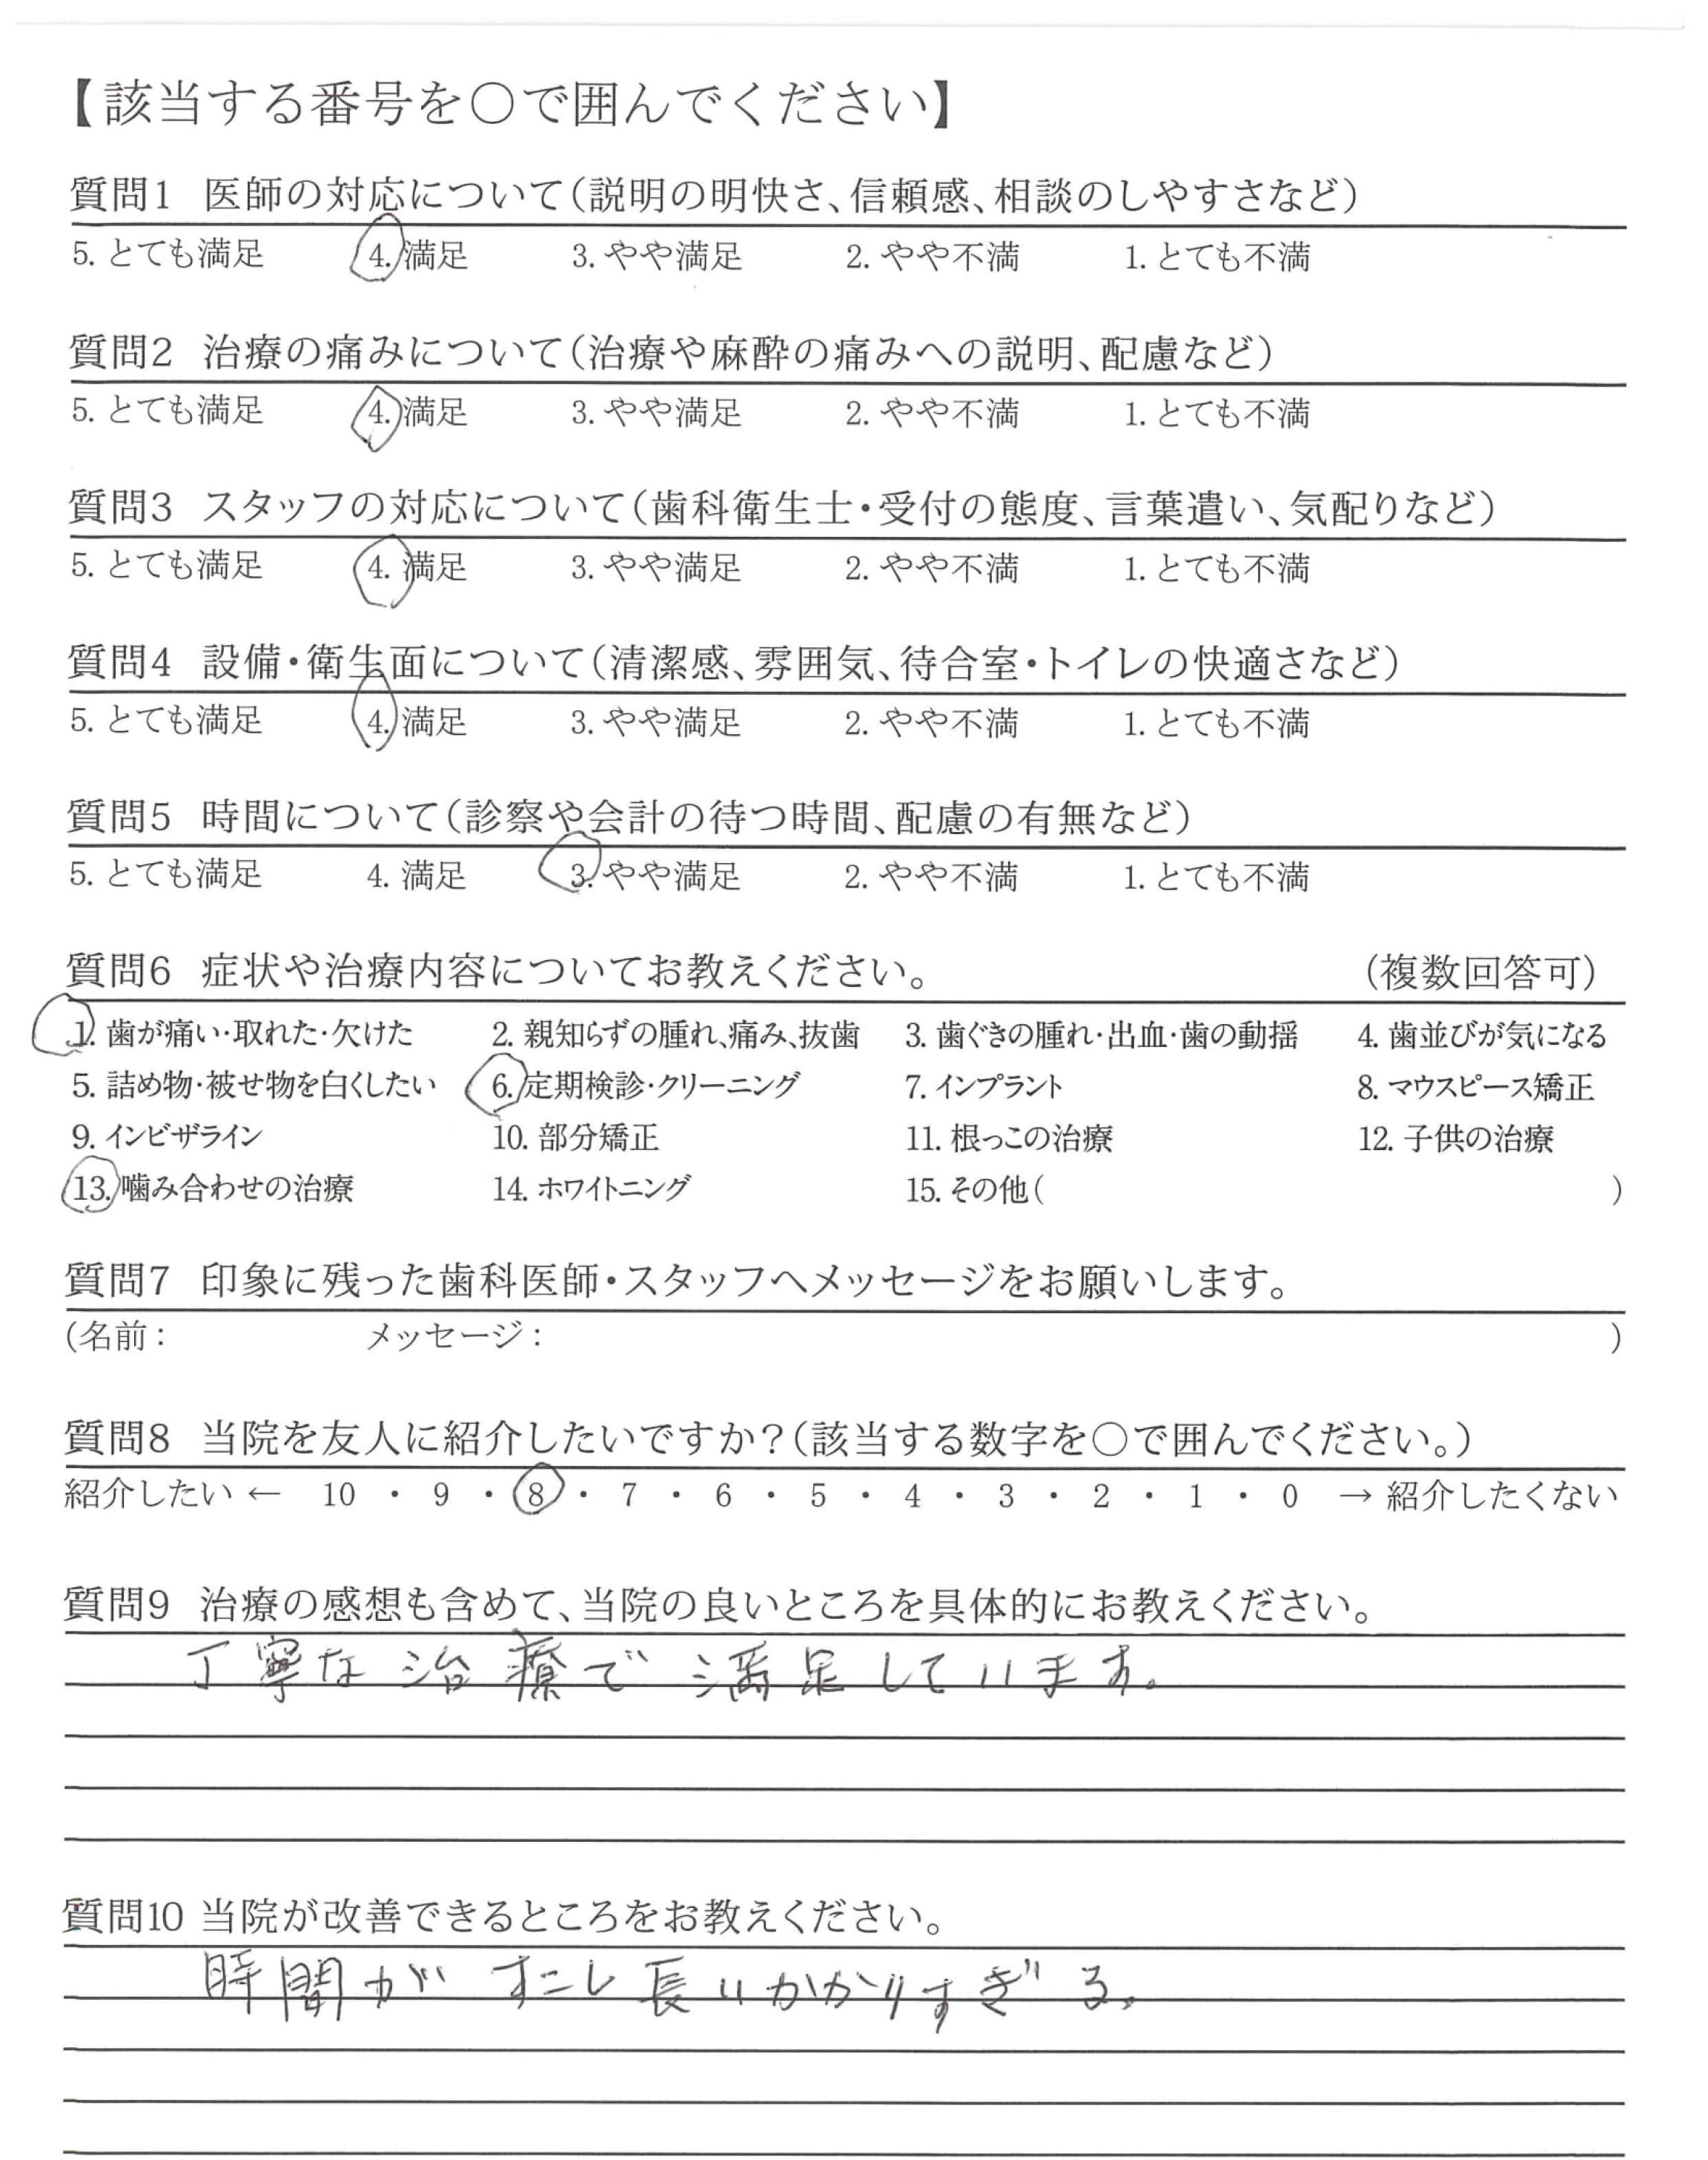 【該当する番号を〇で囲んでください】
質問1 医師の対応について(説明の明快さ、信頼感、相談のしやすさなど)
5. とても満足 4. 満足 3. やや満足 2. やや不満 1. とても不満
質問2 治療の痛みについて(治療や麻酔の痛みへの説明、配慮など)
5. とても満足 4. 満足 3. やや満足 2. やや不満 1. とても不満
質問3 スタッフの対応について(歯科衛生士・受付の態度、言葉遣い、気配りなど)
5. とても満足 4. 満足 3. やや満足 2. やや不満 1. とても不満
質問4 設備・衛生面について(清潔感、雰囲気、待合室・トイレの快適さなど)
5. とても満足 4. 満足 3. やや満足 2. やや不満 1. とても不満
質問5 時間について(診察や会計の待つ時間、配慮の有無など)
5. とても満足 4. 満足 3. やや満足 2. やや不満 1. とても不満
質問6 症状や治療内容についてお教えください。 (複数回答可)
1. 歯が痛い・取れた・欠けた 2. 親知らずの腫れ、痛み、抜歯 3. 歯ぐきの腫れ・出血・歯の動揺 4. 歯並びが気になる
5. 詰め物・被せ物を白くしたい 6. 定期検診・クリーニング 7. インプラント 8. マウスピース矯正
9. インビザライン 10. 部分矯正 11. 根っこの治療 12. 子供の治療
13. 噛み合わせの治療 14. ホワイトニング 15. その他( )
質問7 印象に残った歯科医師・スタッフへメッセージをお願いします。
(名前: メッセージ: )
質問8 当院を友人に紹介したいですか?(該当する数字を〇で囲んでください。)
紹介したい ← 10 ・ 9 ・ 8 ・ 7 ・ 6 ・ 5 ・ 4 ・ 3 ・ 2 ・ 1 ・ 0 → 紹介したくない
質問9 治療の感想も含めて、当院の良いところを具体的にお教えください。
丁寧な治療で満足しています。
質問10 当院が改善できるところをお教えください。
時間がすこし長いかかりすぎる。